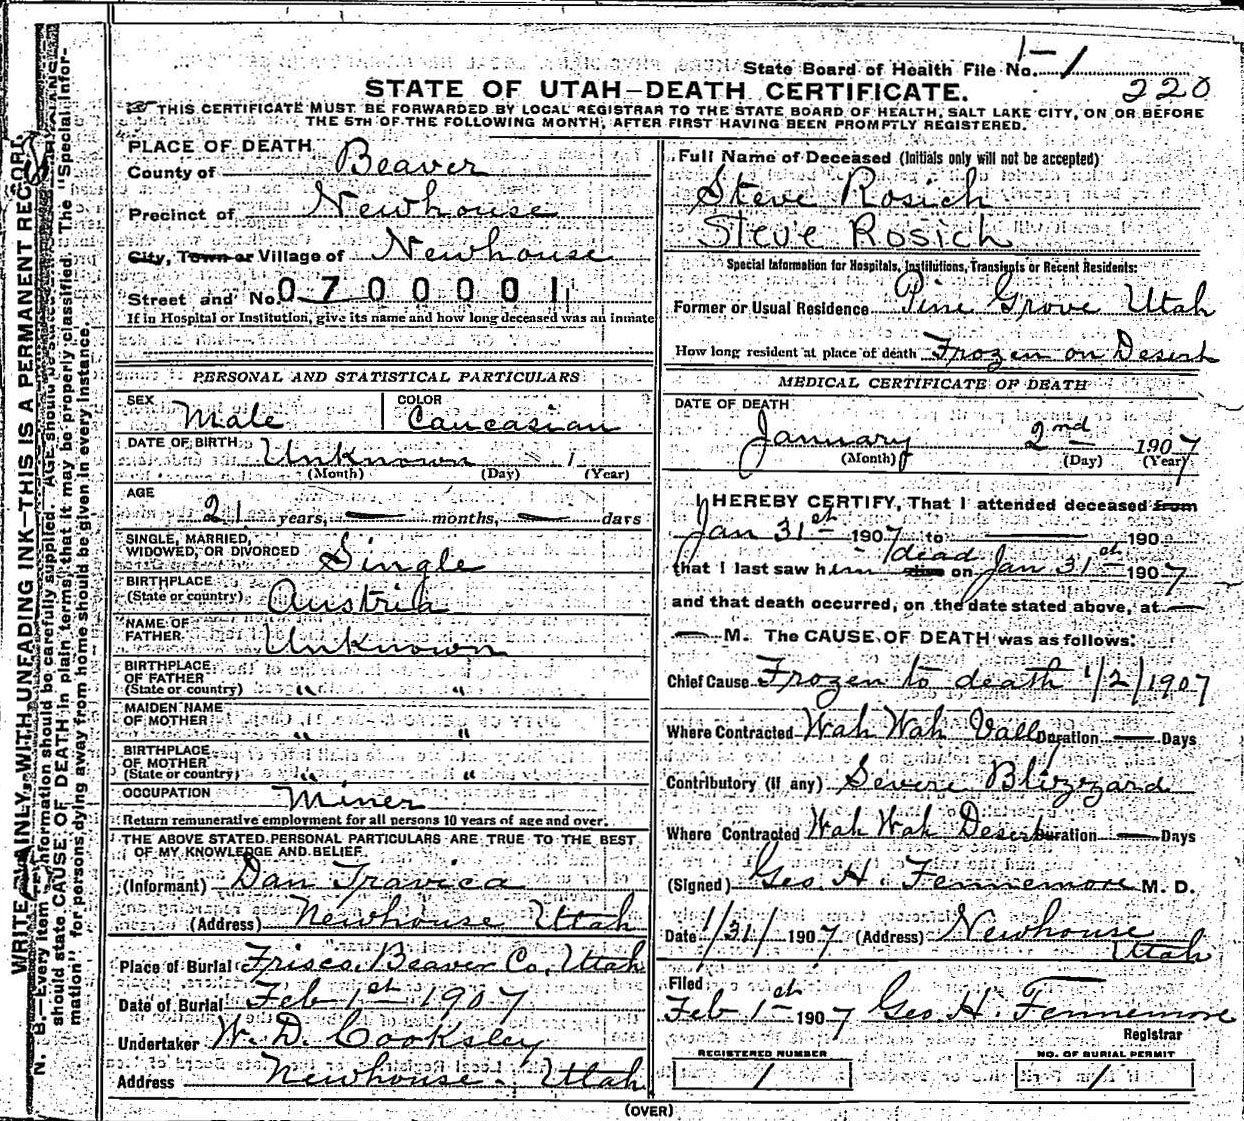 State Board of Health File No. 1-1
220
STATE OF UTAH—DEATH CERTIFICATE.
THIS CERTIFICATE MUST BE FORWARDED BY LOCAL REGISTRAR TO THE STATE BOARD OF HEALTH, SALT LAKE CITY, ON OR BEFORE
THE 5TH OF THE FOLLOWING MONTH, AFTER FIRST HAVING BEEN PROMPTLY REGISTERED.
PLACE OF DEATH
County of Beaver
Precinct of Newhouse
City, Town or Village of Newhouse
Street and No. 0700001
If in Hospital or Institution, give its name and how long deceased was an inmate
PERSONAL AND STATISTICAL PARTICULARS
SEX Male COLOR Caucasian
DATE OF BIRTH Unknown 1
(Month) (Day) (Year)
AGE
21 years, — months, — days
SINGLE, MARRIED,
WIDOWED, OR DIVORCED Single
BIRTHPLACE
(State or country) Austria
NAME OF
FATHER Unknown
BIRTHPLACE
OF FATHER
(State or country) " "
MAIDEN NAME
OF MOTHER " "
BIRTHPLACE
OF MOTHER
(State or country) " "
OCCUPATION Miner
Return remunerative employment for all persons 10 years of age and over.
THE ABOVE STATED PERSONAL PARTICULARS ARE TRUE TO THE BEST
OF MY KNOWLEDGE AND BELIEF
(Informant) Dan Travica
(Address) Newhouse Utah
Place of Burial Frisco, Beaver Co, Utah
Date of Burial Feb 1st 1907
Undertaker W. D. Cooksley
Address Newhouse, Utah
Full Name of Deceased (Initials only will not be accepted)
Steve Rosich
Steve Rosich
Special Information for Hospitals, Institutions, Transients or Recent Residents:
Former or Usual Residence Pine Grove Utah
How long resident at place of death Frozen on Desert
MEDICAL CERTIFICATE OF DEATH
DATE OF DEATH
January 2nd 1907
(Month) (Day) (Year)
I HEREBY CERTIFY, That I attended deceased from
Jan 31st 1907 to — 190
that I last saw him alive dead on Jan 31st 1907
and that death occurred, on the date stated above, at —
— M. The CAUSE OF DEATH was as follows:
Chief Cause Frozen to death 1/2/1907
Where Contracted Wah Wah Vall Duration — Days
Contributory (if any) Severe Blizzard
Where Contracted Wah Wah Desert Duration — Days
(Signed) Geo. H. Fennemore M. D.
Date 1/31/1907 (Address) Newhouse
Utah
Filed
Feb 1st 1907 Geo. H. Fennemore
Registrar
REGISTERED NUMBER
1
NO. OF BURIAL PERMIT
1
(OVER)
WRITE PLAINLY, WITH UNFADING INK—THIS IS A PERMANENT RECORD
N. B.—Every item of information should be carefully supplied. AGE should be
should state CAUSE OF DEATH in plain terms, that it may be properly classified. The "Special Infor-
mation" for persons dying away from home should be given in every instance.